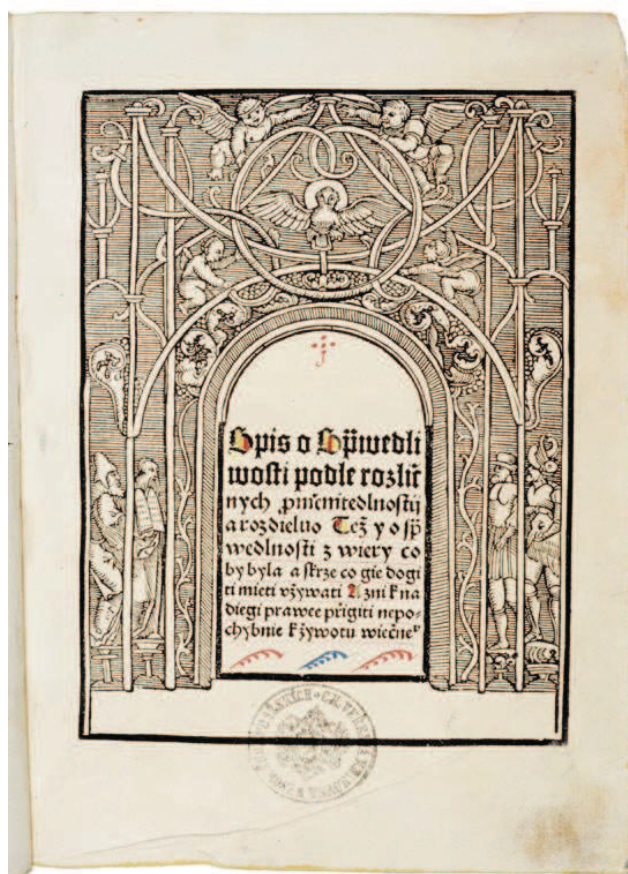 Spis o Sp̃wedli
wosti podle rozlič
nych
a rozdielno Też y o sp̃
wedlnosti z wiery co
by byla a skrze co gie dogi
ti mieti vżywati A zni k na
diegi prawee přigiti nepo-
chybnie k żywotu wiečne